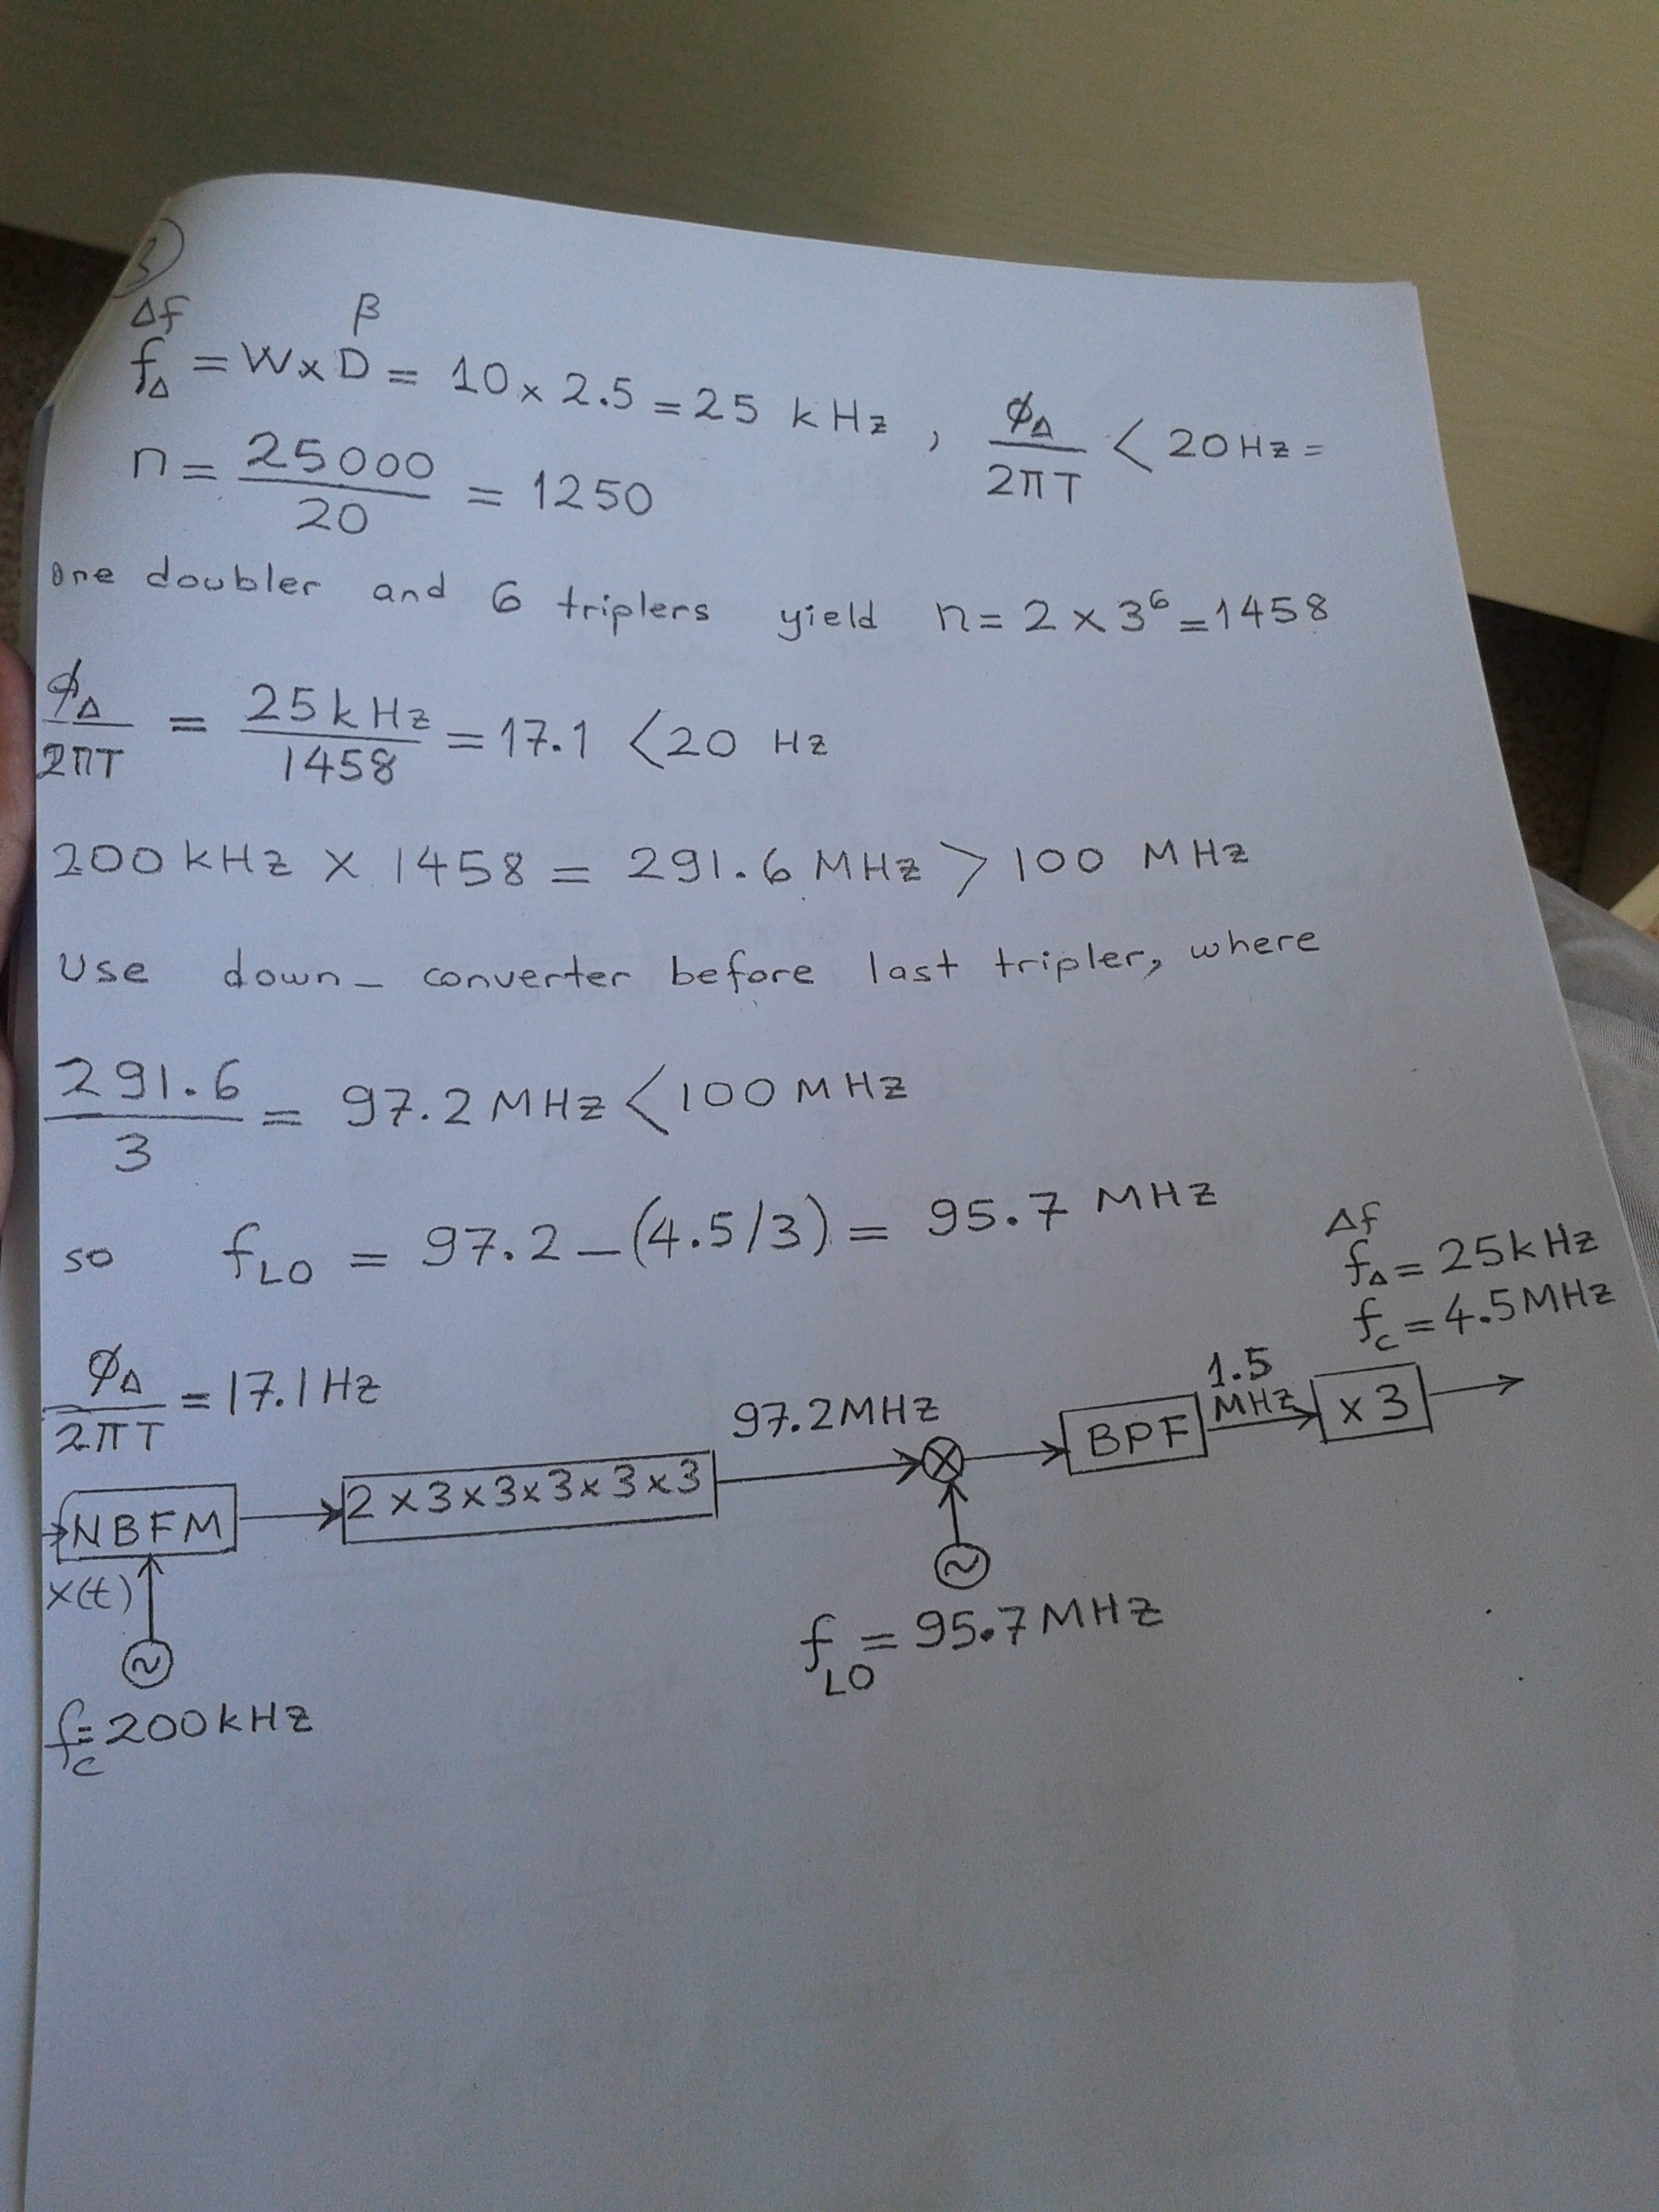 3
Δf β
f_Δ = W×D = 10 × 2.5 = 25 kHz , ϕ_Δ / 2πT < 20 Hz =
n = 25000 / 20 = 1250
one doubler and 6 triplers yield n = 2 × 3⁶ = 1458
ϕ_Δ / 2πT = 25 kHz / 1458 = 17.1 < 20 Hz
200 kHz × 1458 = 291.6 MHz > 100 MHz
Use down_ converter before last tripler, where
291.6 / 3 = 97.2 MHz < 100 MHz
so f_LO = 97.2 − (4.5/3) = 95.7 MHz
Δf
f_Δ = 25 kHz
f_c = 4.5 MHz
ϕ_Δ / 2πT = 17.1 Hz
97.2 MHz
1.5 MHz
NBFM
2 × 3 × 3 × 3 × 3 × 3
BPF
× 3
x(t)
f_LO = 95.7 MHz
f_c = 200 kHz